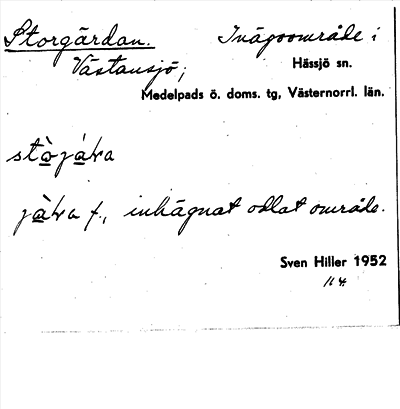 Storgärdan. Inägoområde i
Västansjö; Hässjö sn.
Medelpads ö. doms. tg, Västernorrl. län.
stò̱já̱ƚƚa
jà̱ƚƚa f., inhägnat odlat område.
Sven Hiller 1952